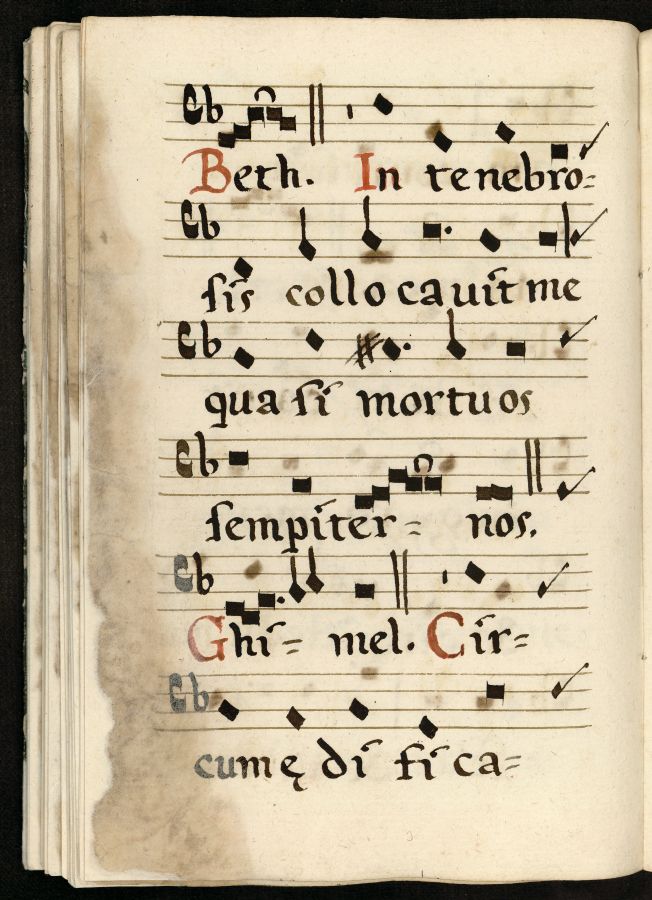 Beth. In tenebro=
sis collocavit me
quasi mortuos
sempiter= nos.
Ghi= mel. Cir=
cumędifica=